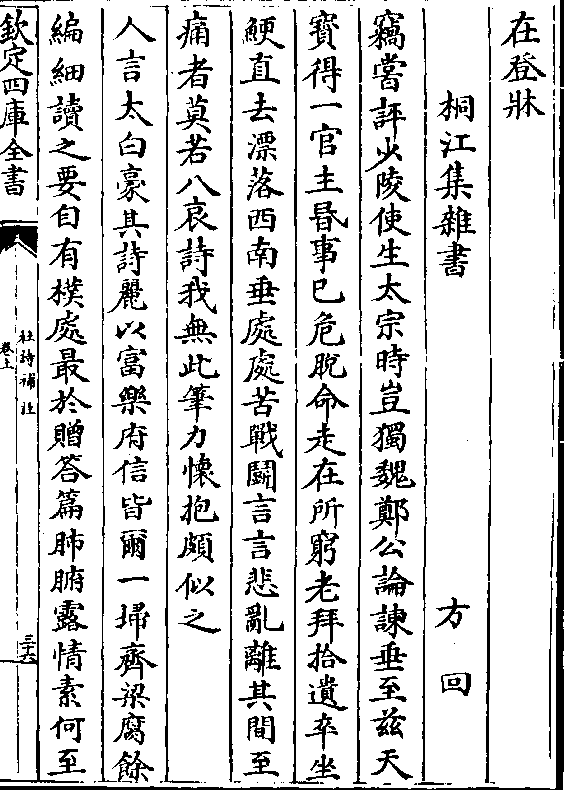 在登牀
桐江集雜書 方回
竊嘗評少陵使生太宗時豈獨魏鄭公論諫垂至兹天
寳得一官主昬事已危脫命走在所窮老拜拾遺卒坐
鯁直去漂落西南垂處處苦戰鬭言言悲亂離其間至
痛者莫若八哀詩我無此筆力懷抱頗似之
人言太白豪其詩麗以富樂府信皆爾一埽齊梁腐餘
編細讀之要自有樸處最於贈答篇肺腑露情素何至
欽定四庫全書
杜詩補註
卷上
三十六